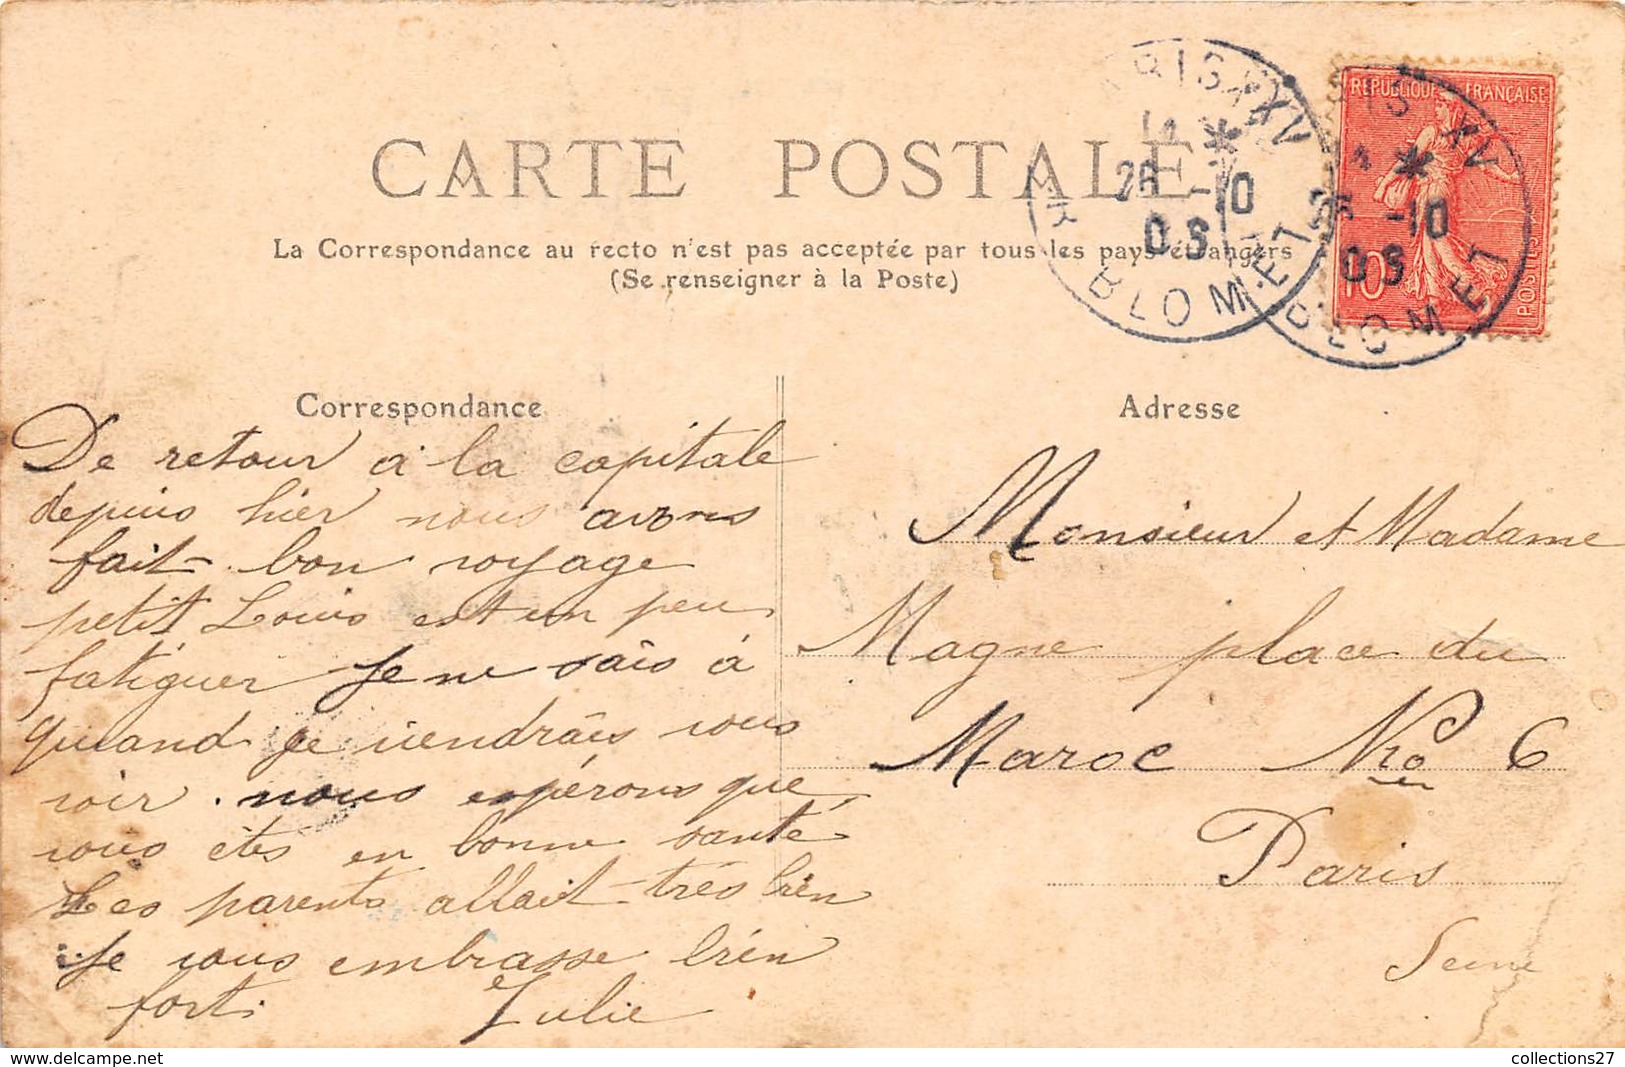 CARTE POSTALE
La Correspondance au recto n'est pas acceptée par tous les pays étrangers
(Se renseigner à la Poste)
PARIS XV
26 -10
R. BLOMET
REPUBLIQUE FRANÇAISE
10
POSTES
Correspondance
De retour à la capitale
depuis hier nous avons
fait bon voyage
petit Louis est un peu
fatiguer Je ne sais à
quand je viendrais vous
voir. nous espérons que
vous êtes en bonne santé
Les parents allait très bien
Je vous embrasse bien
fort. Julie
Adresse
Monsieur et Madame
Magne place du
Maroc No 6
Paris
Seine
collections27